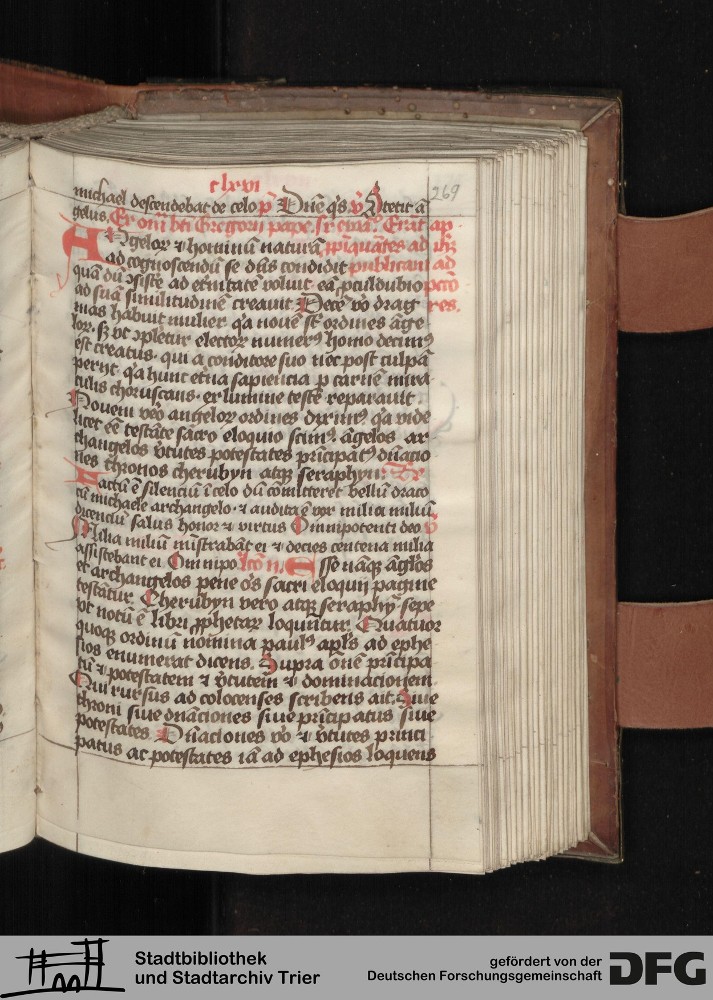 clxvi
269
michael descendebat de celo p̄ Dūe q̄s v̄ Stetit ā
gelus. Ex om̄ bti Gregorii pape. Sc̄ evā. Erāt ap
Angeloꝝ ⁊ hominū naturā ꝓpiquātes ad ih̄z
ad cognoscendū se dn̄s condidit publicani ad
quā dū ↄsistē ad et̄nitatē voluit. eā ꝓculdubio pctō
ad suā similitudinē creavit Decē v̄o drag res.
mas habuit mulier q̄a novē st̄ ordines āge
loꝝ. sꝫ ut ↄpletur electoꝝ numerꝰ homo decimꝰ
est creatus. qui a conditore suo nec post culpā
periit. q̄a hunc et̄na sapiencia p carnē mira
culis choruscans. ex lumine teste reparavit
Novem vēo angeloꝝ ordines dixim̄ꝰ q̄a vide
licet eē testāte sacro eloquio scimꝰ. āgelos ar
changelos v̄tutes potestates p̄ncipatꝰ dn̄acio
nes thronos cherubyn atqꝫ seraphyn.
Factū ē silenciū ī celo dū cōmitteret bellū draco
cū michaele archangelo. ⁊ audita ē vox milia miliū
dicenciū salus honor ⁊ virtus Omnipotenti deo v̄
Milia miliū mīstrabāt ei ⁊ decies centena milia
assistebant ei Omnipo lcō n. Esse nāqꝫ āglos
et archangelos pene ōs sacri eloquii pagine
testātur. Cherubyn vero atqꝫ seraphȳ sepe
ut notū ē libri ꝓphetaꝝ loquūtur. Quatuor
quoqꝫ ordinū nomina paulꝰ apl̄s ad ephe
sios enumerat dicens. Supra ōnē principa
tū ⁊ potestatem ⁊ v̄tutem ⁊ dominacionem
Qui rursus ad colocenses scribens ait. Sive
throni sive dn̄aciones sive p̄ncipatus sive
potestates. Dn̄aciones v̄o ⁊ v̄tutes princi
patus ac potestates iā ad ephesios loquens
Stadtbibliothek
und Stadtarchiv Trier
gefördert von der
Deutschen Forschungsgemeinschaft DFG